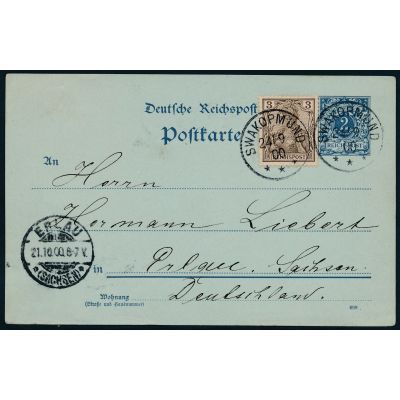 Deutsche Reichspost
Postkarte
3
REICHSPOST
2
REICHSPOST
SWAKOPMUND
24/9
00
* *
SWAKOPMUND
00
* *
An
Herrn
Hermann Liebert
ERLAU
21.10.00.6-7 V.
*(SACHSEN)*
in Sachsen.
Deutschland.
Wohnung
(Straße und Hausnummer)